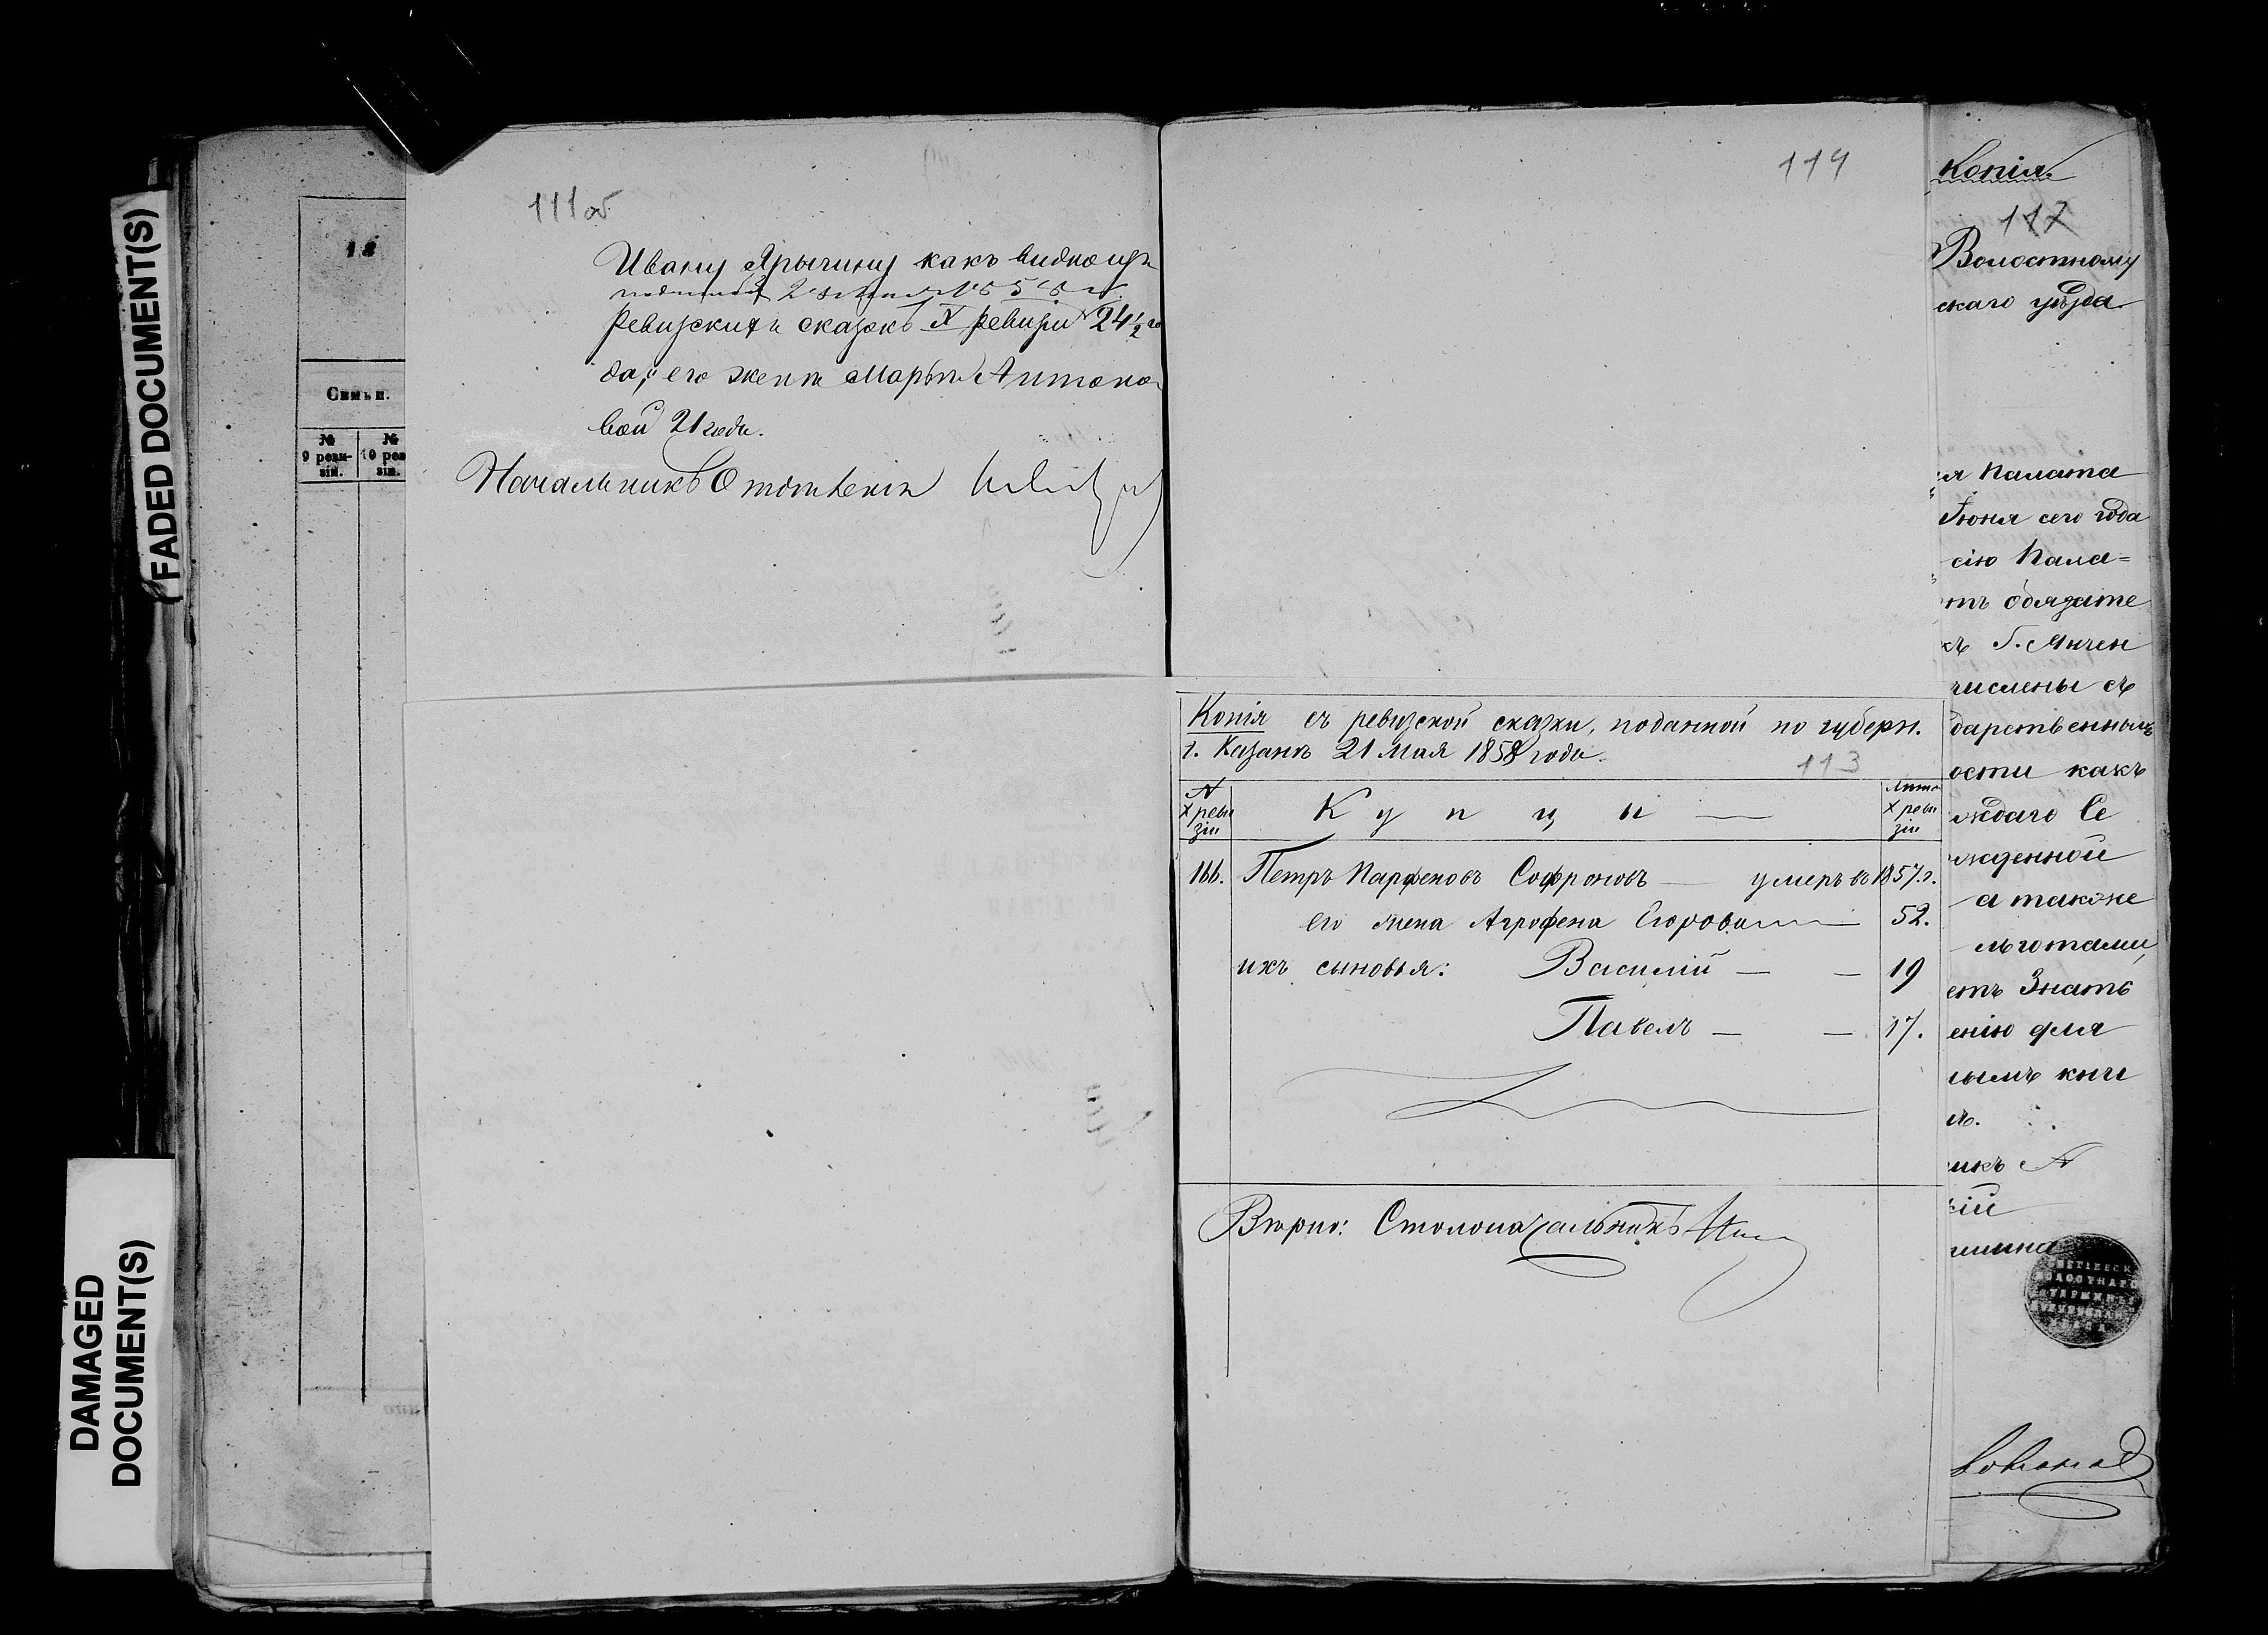 FADED DOCUMENT(S)
DAMAGED
DOCUMENT(S)
18
Семьи.
№
9 реви-
зіи.
№
10 рев
зіи.
111об
Ивану Ярычину какъ видно изъ
поданной 2
Ревизскихъ сказокъ X ревизіи 24 1/2 го
да, и его женѣ Марьѣ Антоно
вой 21 года.
Начальникъ Отдѣленія
114
Копія съ ревизской сказки, поданной по губерн.
г. Казани 21 Мая 1858 года.
113
№
X реви
зіи
Купцы
Лѣта
X реви
зіи
166. Петръ Парфеновъ Софроновъ — умеръ въ 1857.г.
его жена Агрофена Егорова — 52.
ихъ сыновья: Василій — — 19
Павелъ — — 17.
Вѣрно: Столоначальникъ
Копія
117
Волостному
скаго уѣзда
я Палата
Іюня сего года
сію Пала=
тъ обязате
къ Г. Мичен
числены съ
дарственнымъ
ости какъ
ждаго Се
жденной
а также
льготами,
етъ Знать
енію для
нымъ кни
икъ А
кій
шина